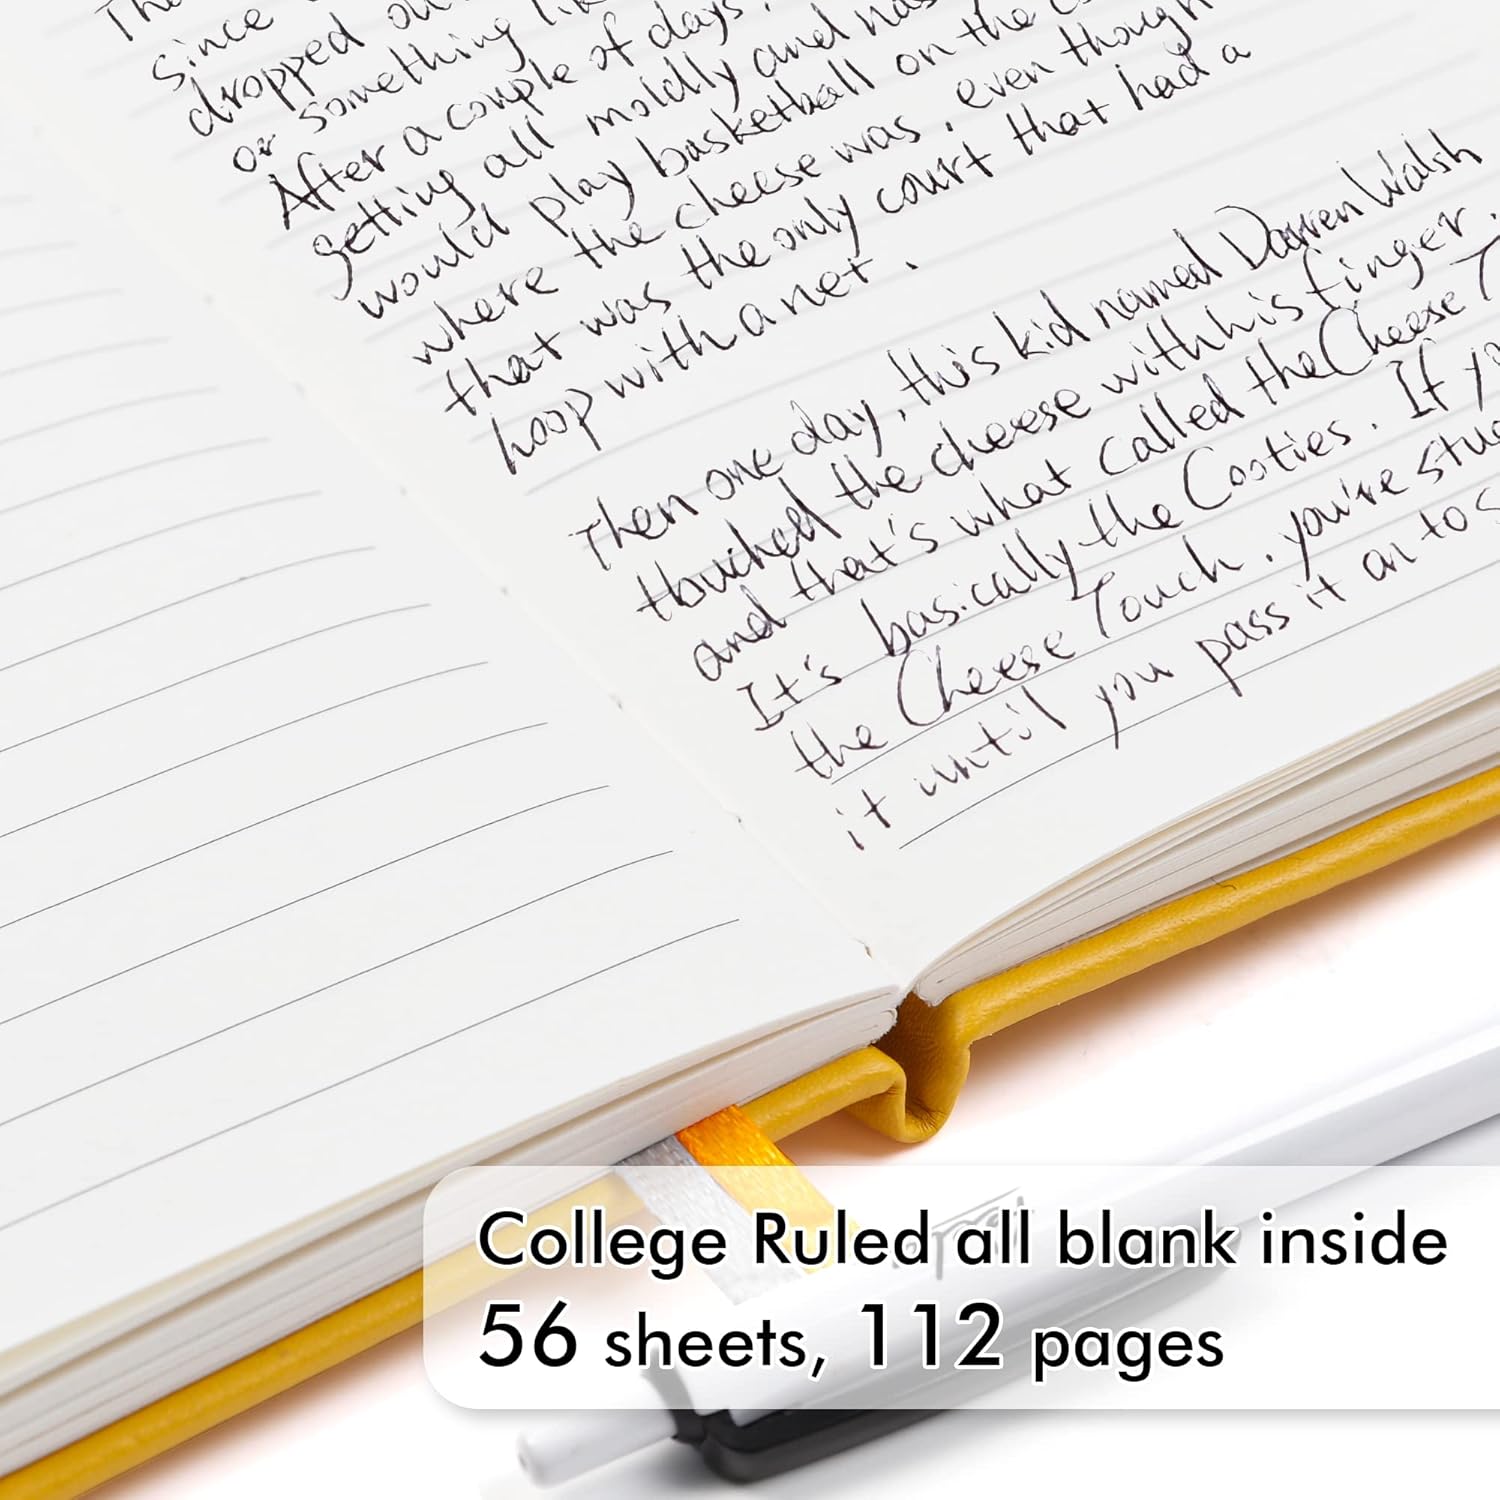 The
since
dropped
or something
After a couple of days,
getting all moldly and
would play basketball on the
where the cheese was, even though
that was the only court that had a
hoop with a net.
Then one day, this kid named Darren Walsh
touched the cheese with his finger.
and that's what called the Cheese T
It's basically the Cooties. If
the Cheese Touch, you're
it until you pass it on to
College Ruled all blank inside
56 sheets, 112 pages